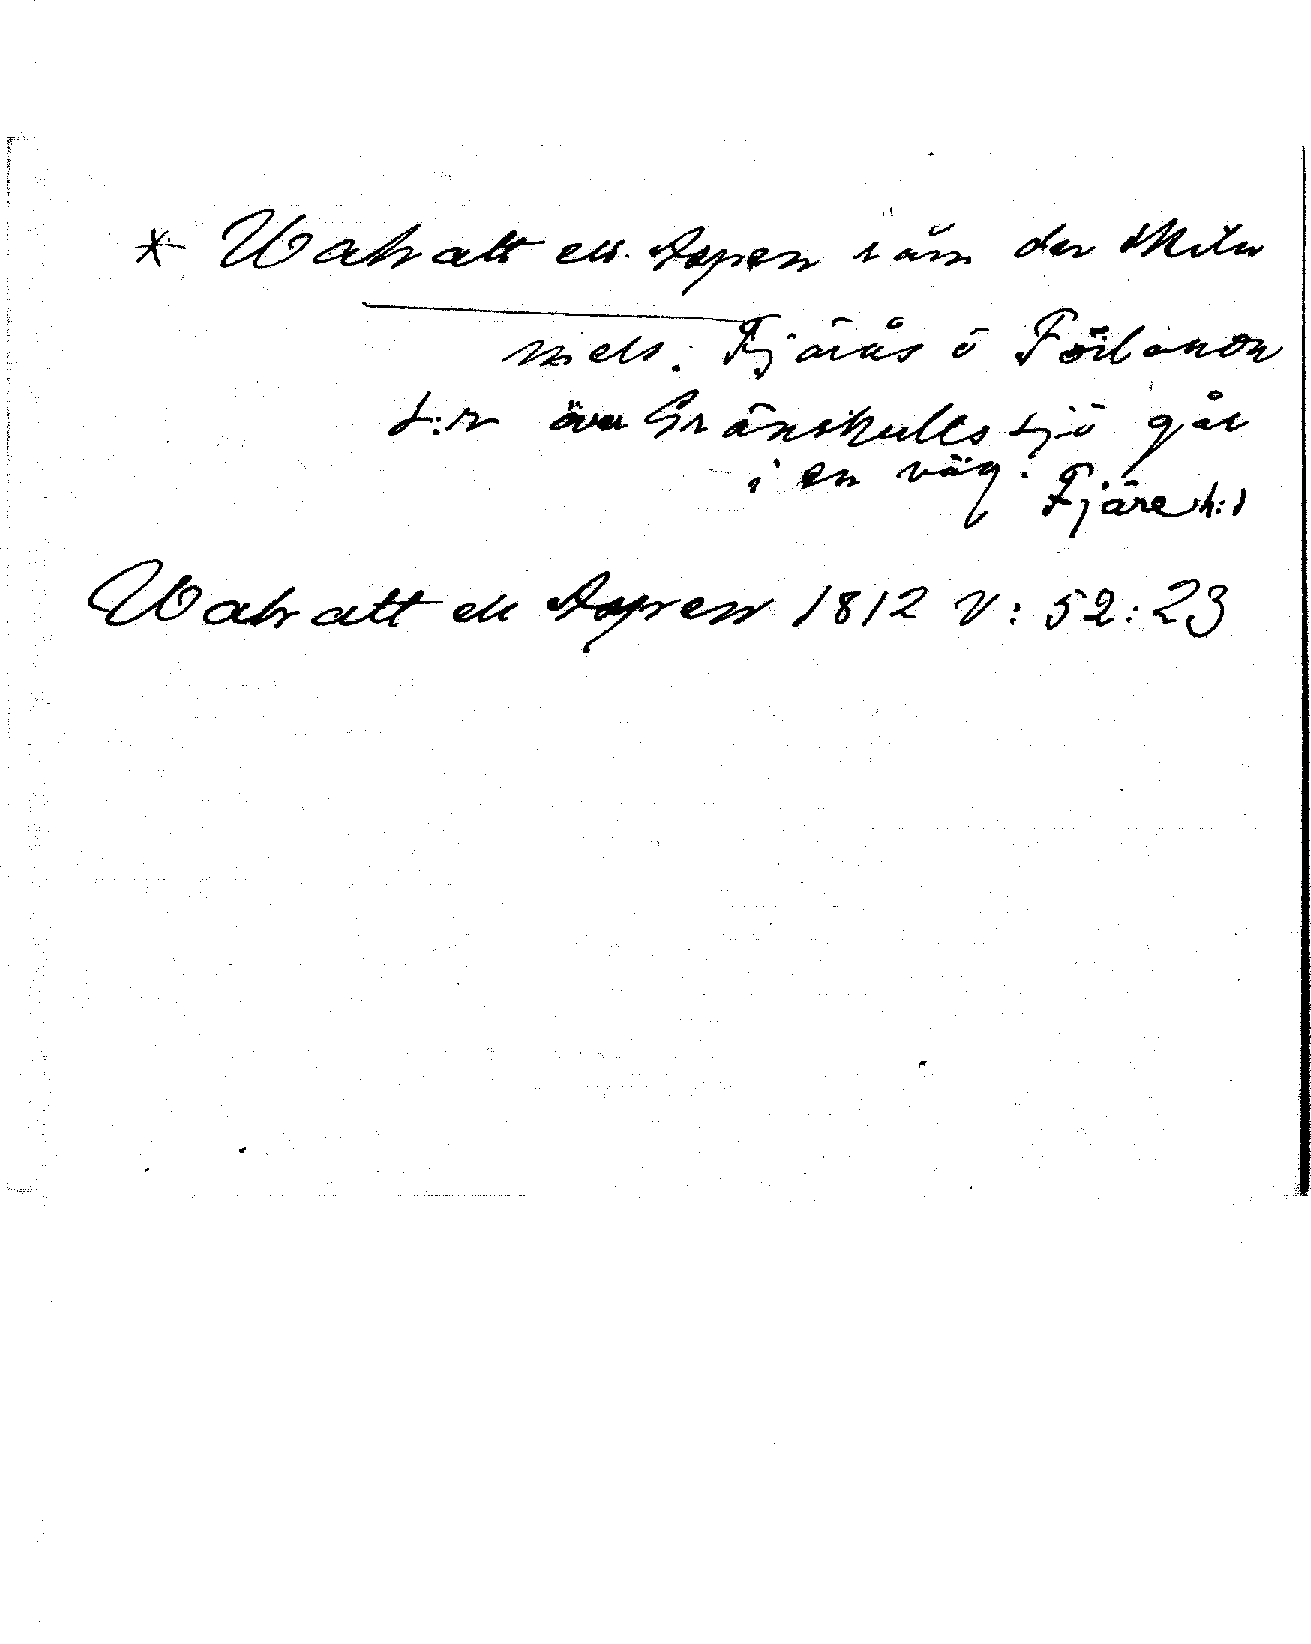 * Wahratt ell. Aspen råm der skiler
mels. Fjärås o Förlanda
s:n över Gränskulls sjö går
i en väg. Fjäre h:d
Wahratt ell Aspen 1812 V: 52: 23